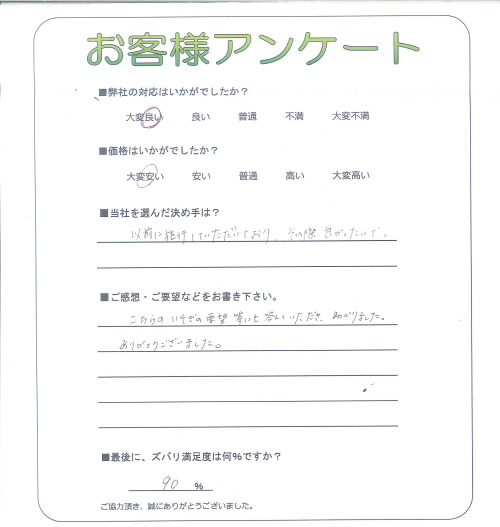 お客様アンケート
■弊社の対応はいかがでしたか?
大変良い 良い 普通 不満 大変不満
■価格はいかがでしたか?
大変安い 安い 普通 高い 大変高い
■当社を選んだ決め手は?
以前に施行していただいており、その際良かったので。
■ご感想・ご要望などをお書き下さい。
こちらのいそぎの要望等にも答えていただき、助かりました。
ありがとうございました。
■最後に、ズバリ満足度は何%ですか?
90 %
ご協力頂き、誠にありがとうございました。